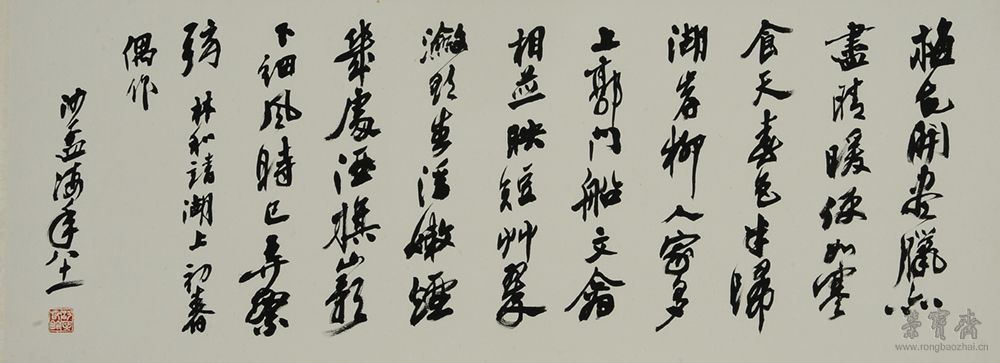 梅花開盡臘亦
盡晴暖便如寒
食天春色半歸
湖岸柳人家多
上郭門船文禽
相並映短艸翠
瀲欲生浮嫩煙
幾處酒旗山影
下細風時已弄繁
弦 林和靖湖上初春
偶作
沙孟海年八十一
榮寶齋
www.rongbaozhai.cn